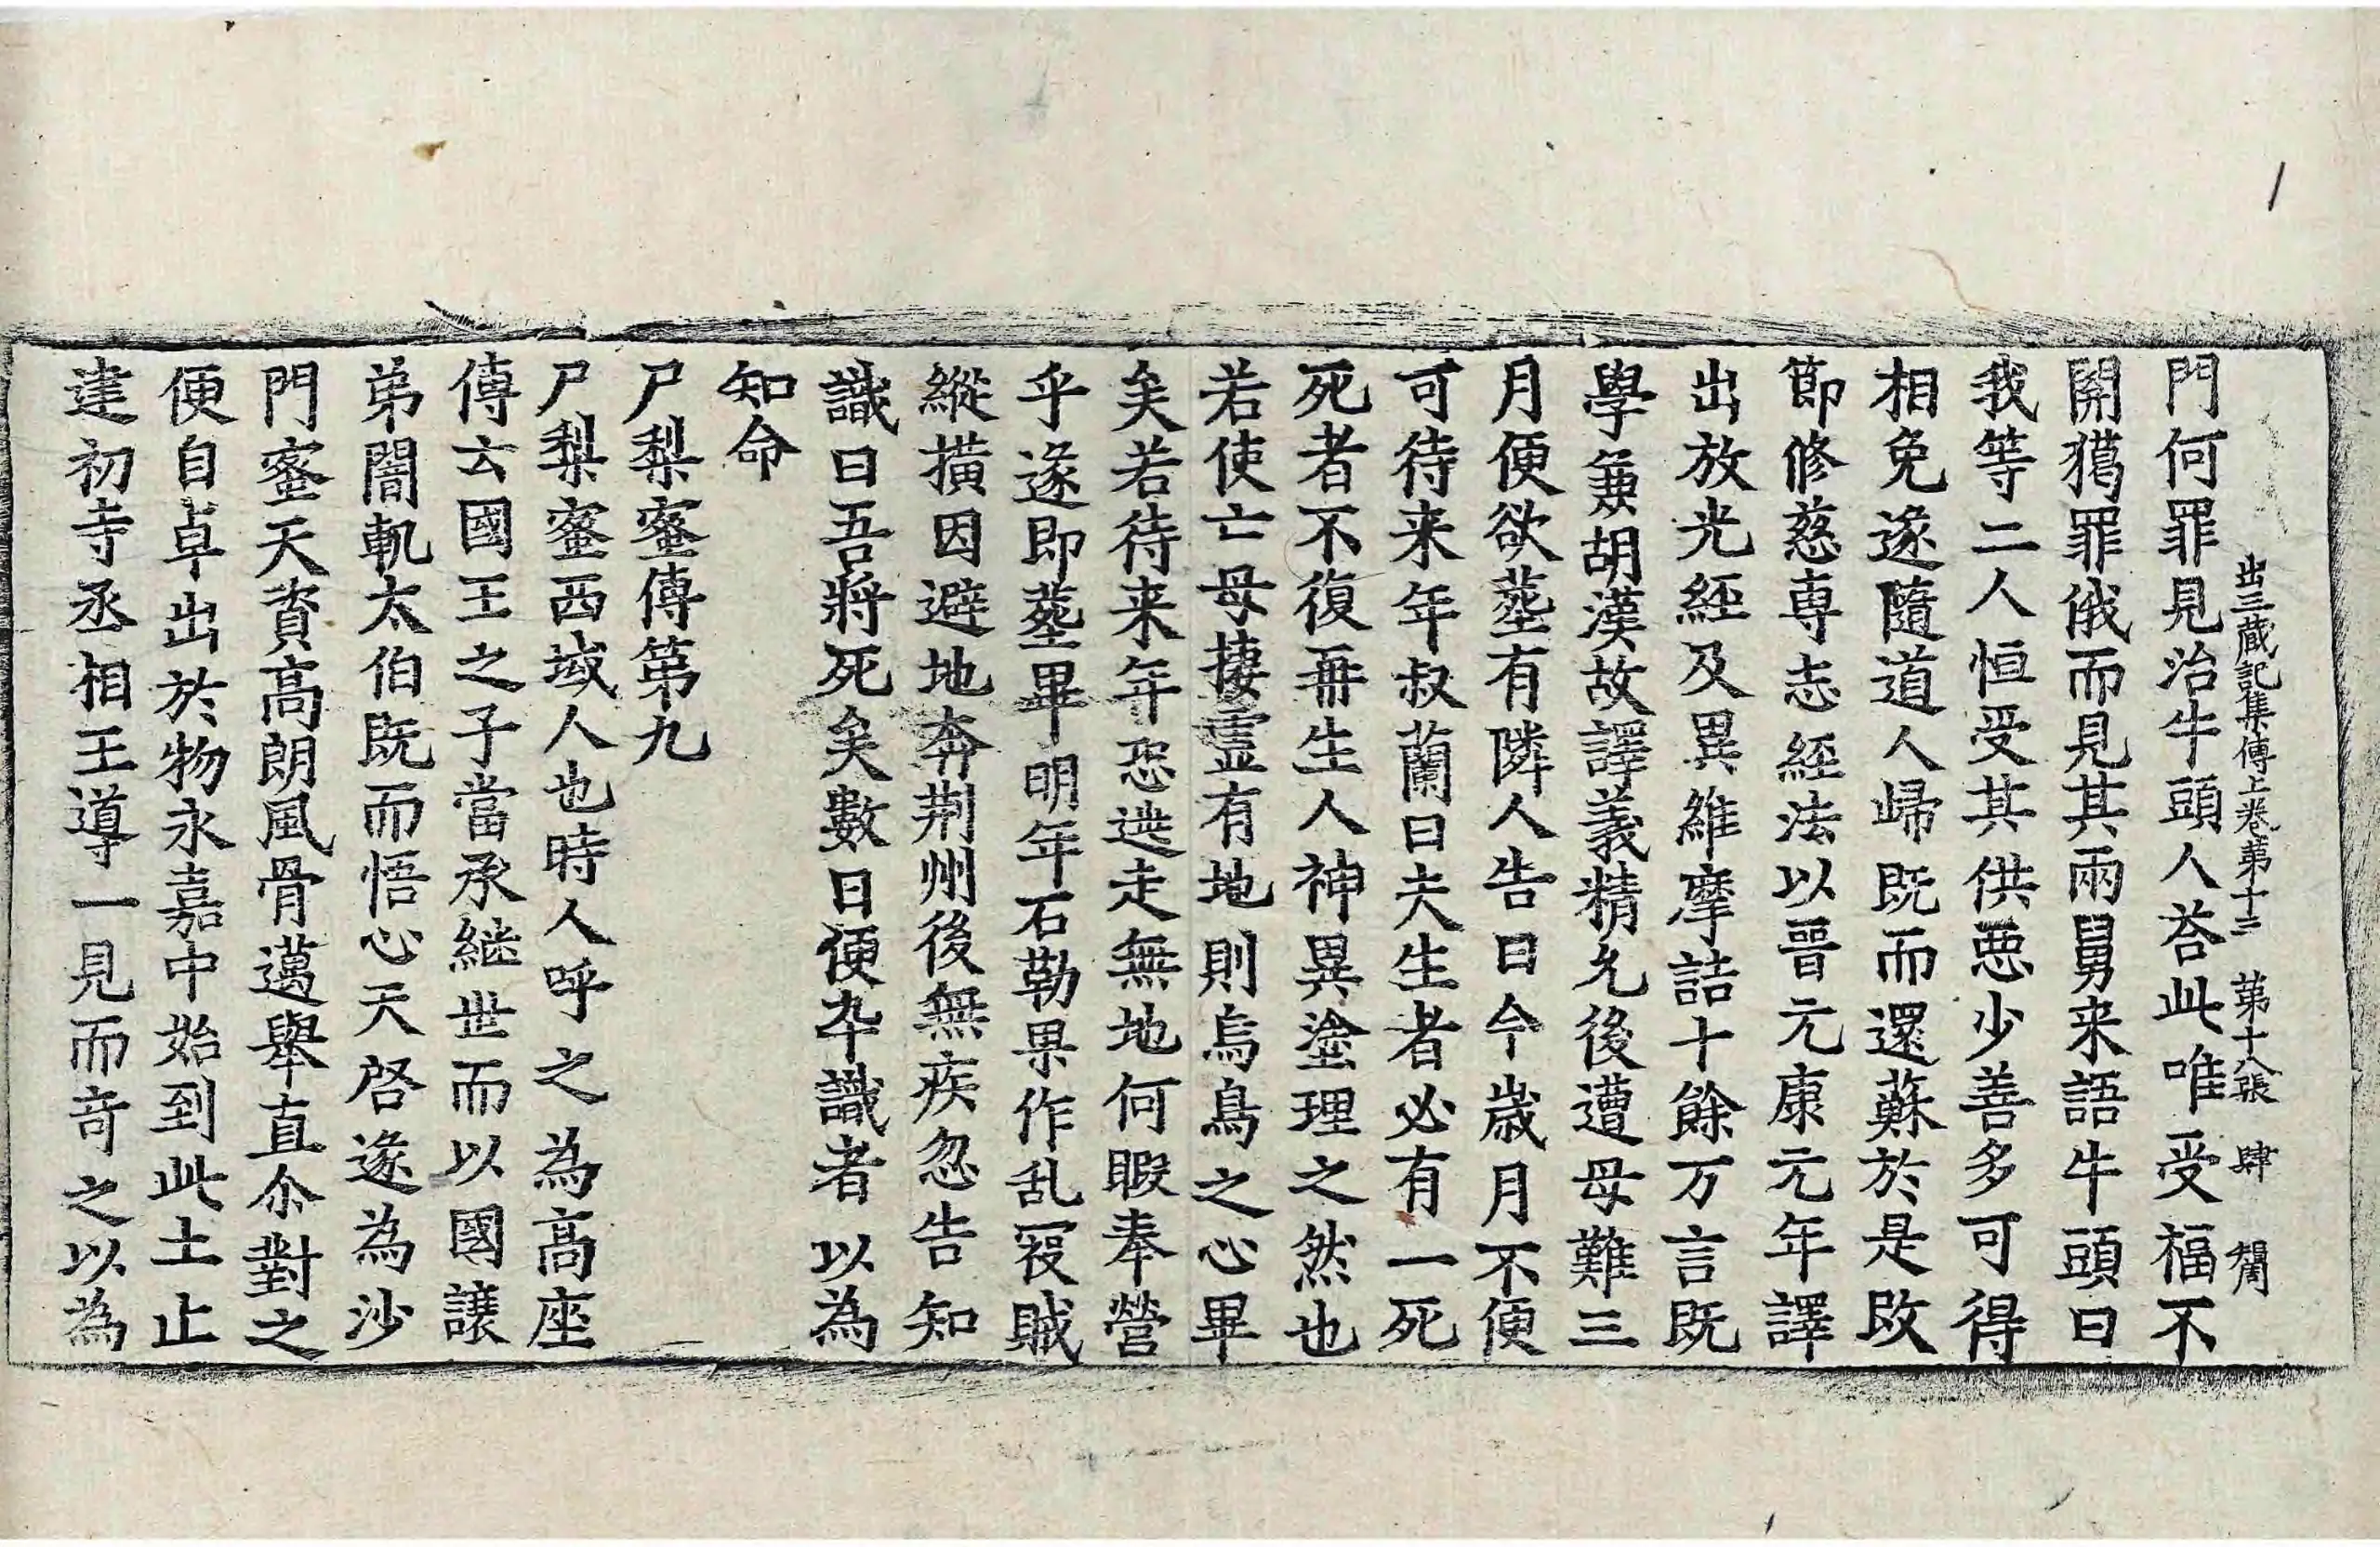 出三蔵記集傳上卷第十三 第十八張 肆
門何罪見治牛頭人荅此唯受福不
開獦罪俄而見其兩舅来語牛頭曰
我等二人恒受其供悪少善多可得
相免遂隨道人歸既而還蘇於是改
節修慈専志經法以晉元康元年譯
出放光經及異維摩詰十餘万言既
學兼胡漢故譯義精允後遭母難三
月便欲塟有隣人告曰今歳月不便
可待来年叔蘭曰夫生者必有一死
死者不復再生人神異塗理之然也
若使亡母棲霊有地則烏鳥之心畢
矣若待来年恐迯走無地何暇奉營
乎遂即塟畢明年石勒果作乱寇賊
縱撗因避地奔荆州後無疾忽告知
識曰吾將死矣數日便卒識者以為
知命
尸梨蜜傳第九
尸梨蜜西域人也時人呼之為高座
傳云國王之子當承継世而以國譲
弟闇軌太伯既而悟心天啓遂為沙
門蜜天資高朗風骨邁舉直尒對之
便自卓出於物永嘉中始到此土止
建初寺丞相王導一見而竒之以為